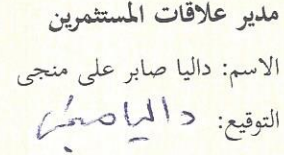 مدير علاقات المستثمرين
الاسم: داليا صابر على منجى
التوقيع: داليا